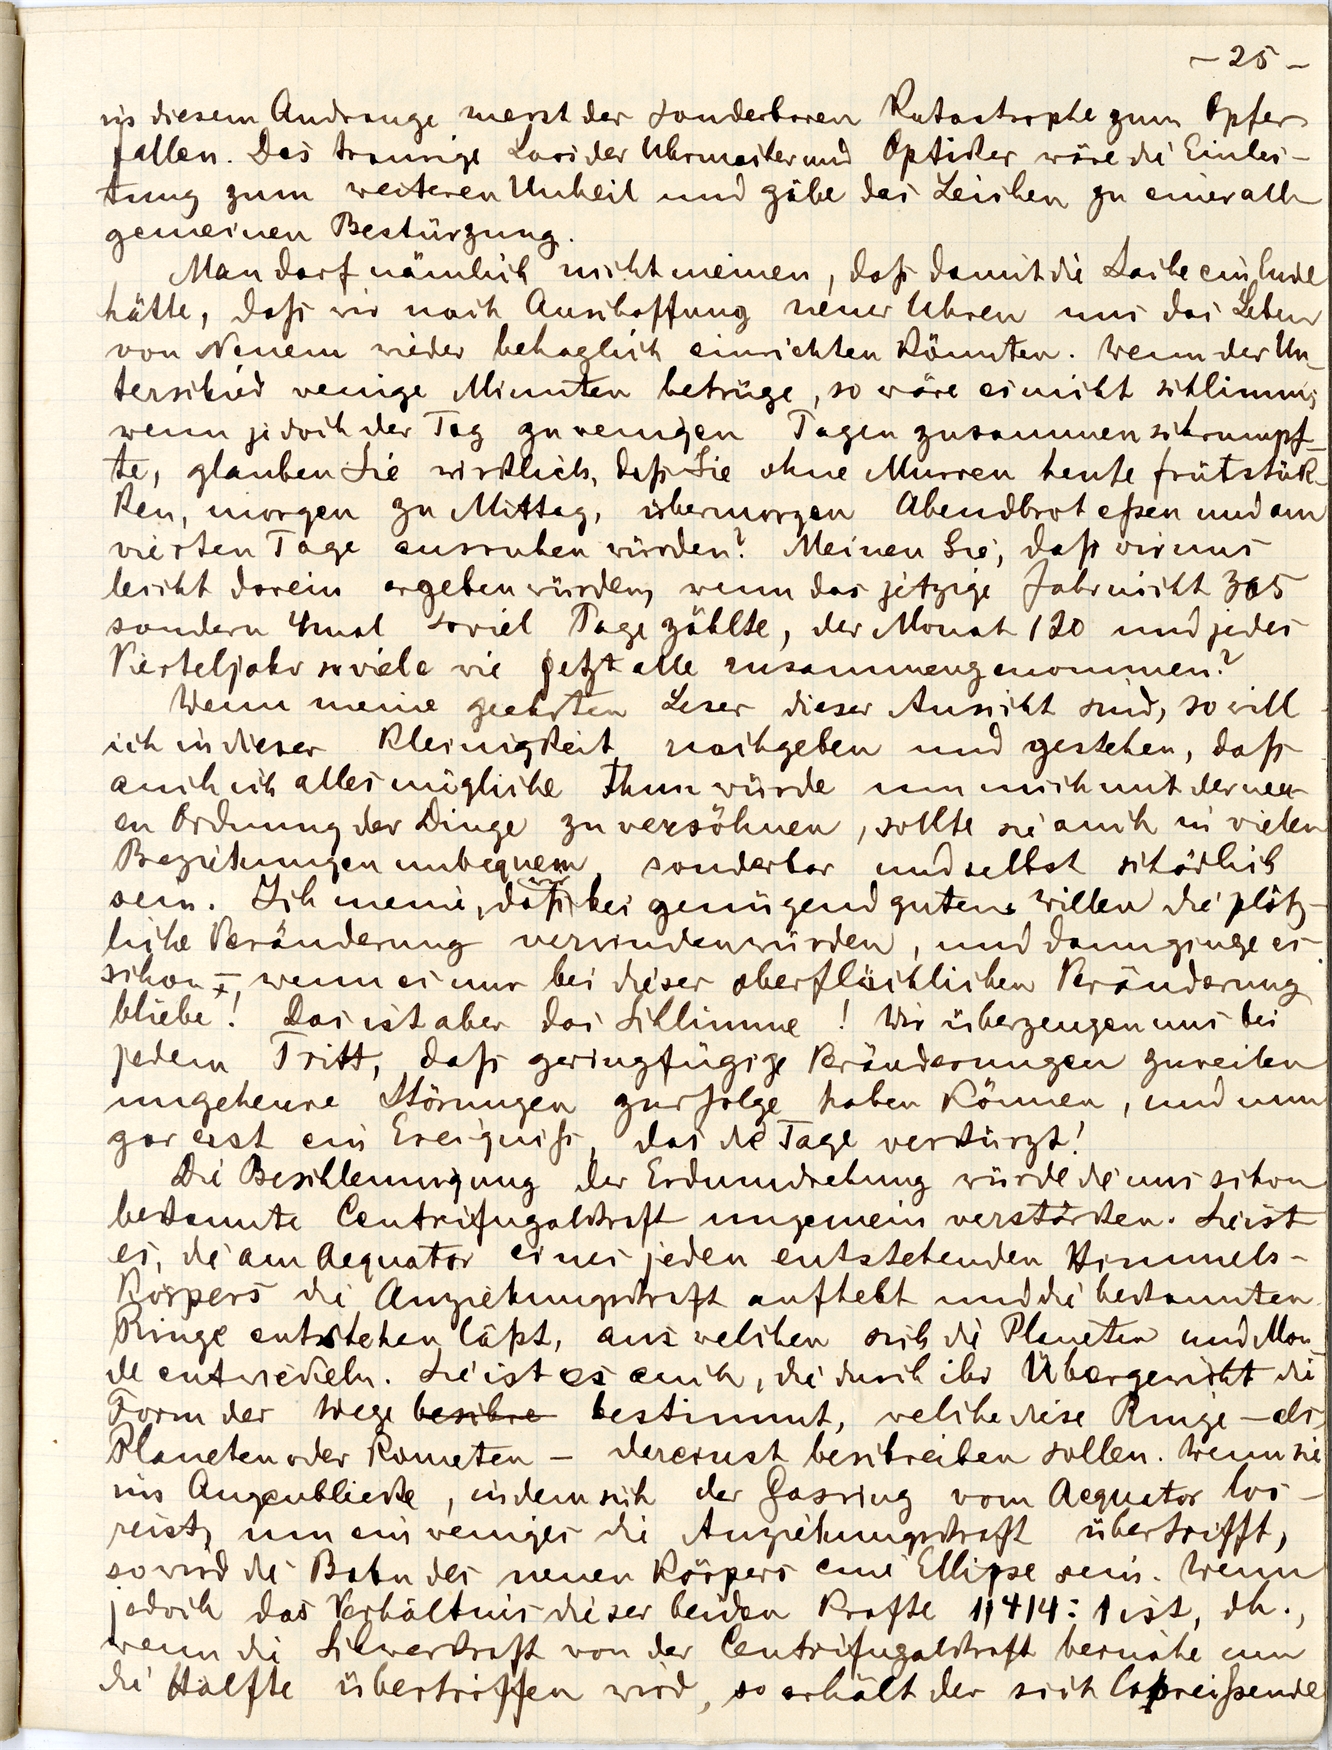 – 25 –
in diesem Andrange merst der sonderbaren Katastrophe zum Opfer
fallen. Das traurige Loos der Uhrmacher und Optiker wäre die Einlei-
tung zum weiteren Unheil und gäbe das Zeichen zu einer all-
gemeinen Bestürzung.
Man darf nämlich nicht meinen, daß damit die Sache ein Ende
hätte, daß wir nach Anschaffung neuer Uhren uns das Leben
von Neuem wieder behaglich einrichten könnten. Wenn der Un-
terschied wenige Minuten betrüge, so wäre es nicht schlimm;
wenn jedoch der Tag zu wenigen Tagen zusammenschrumpf-
te, glauben Sie wirklich, daß Sie ohne Murren heute frühstük-
ken, morgen zu Mittag, übermorgen Abendbrot eßen und am
vierten Tage ausruhen würden? Meinen Sie, daß wir uns
leicht darein ergeben würden, wenn das jetzige Jahr nicht 365
sondern 4mal soviel Tage zählte, der Monat 120 und jedes
Vierteljahr soviele wie jetzt alle zusammengenommen?
Wenn meine geehrten Leser dieser Ansicht sind, so will
ich in dieser Kleinigkeit nachgeben und gestehen, daß
auch ich alles mögliche thun würde um mich mit der neu-
en Ordnung der Dinge zu versöhnen, sollte sie auch in vielen
Beziehungen unbequem, sonderbar und selbst schädlich
sein. Ich meine, daß wir bei genügend guten willen die plötz-
liche Veränderung verwinden würden, und dann ginge es
schon –, wenn es nur bei dieser oberflächlichen Veränderung
bliebe! Das ist aber das Schlimme! Wir überzeugen uns bei
jedem Tritt, daß geringfügige Veränderungen zuweilen
ungeheure Störungen zur folge haben können, und nun
gar erst ein Ereigniß, das die Tage verkürzt!
Die Beschleunigung der Erdumdrehung würde die uns schon
bekannte Centrifugalkraft ungemein verstärken. Sie ist
es, die am Aequator eines jeden entstehenden Himmels-
körpers die Anziehungskraft aufhebt und die bekannten
Ringe entstehen läßt, aus welchen sich die Planeten und Mon-
de entwickeln. Sie ist es auch, die durch ihr Übergewicht die
Form der Wege beschre bestimmt, welche diese Ringe – als
Planeten oder Kometen – dereinst beschreiben sollen. Wenn sie
im Augenblicke, indem sich der Gasring vom Aequator los-
reist, um ein weniges die Anziehungskraft übertrifft,
so wird die Bahn des neuen Körpers eine Ellipse sein. Wenn
jedoch das Verhältnis dieser beiden Krafte 1,414:1 ist, dh.,
wenn die Schwerkraft von der Centrifugalkraft beinahe um
die Hälfte übertroffen wird, so erhält der sich losreißende